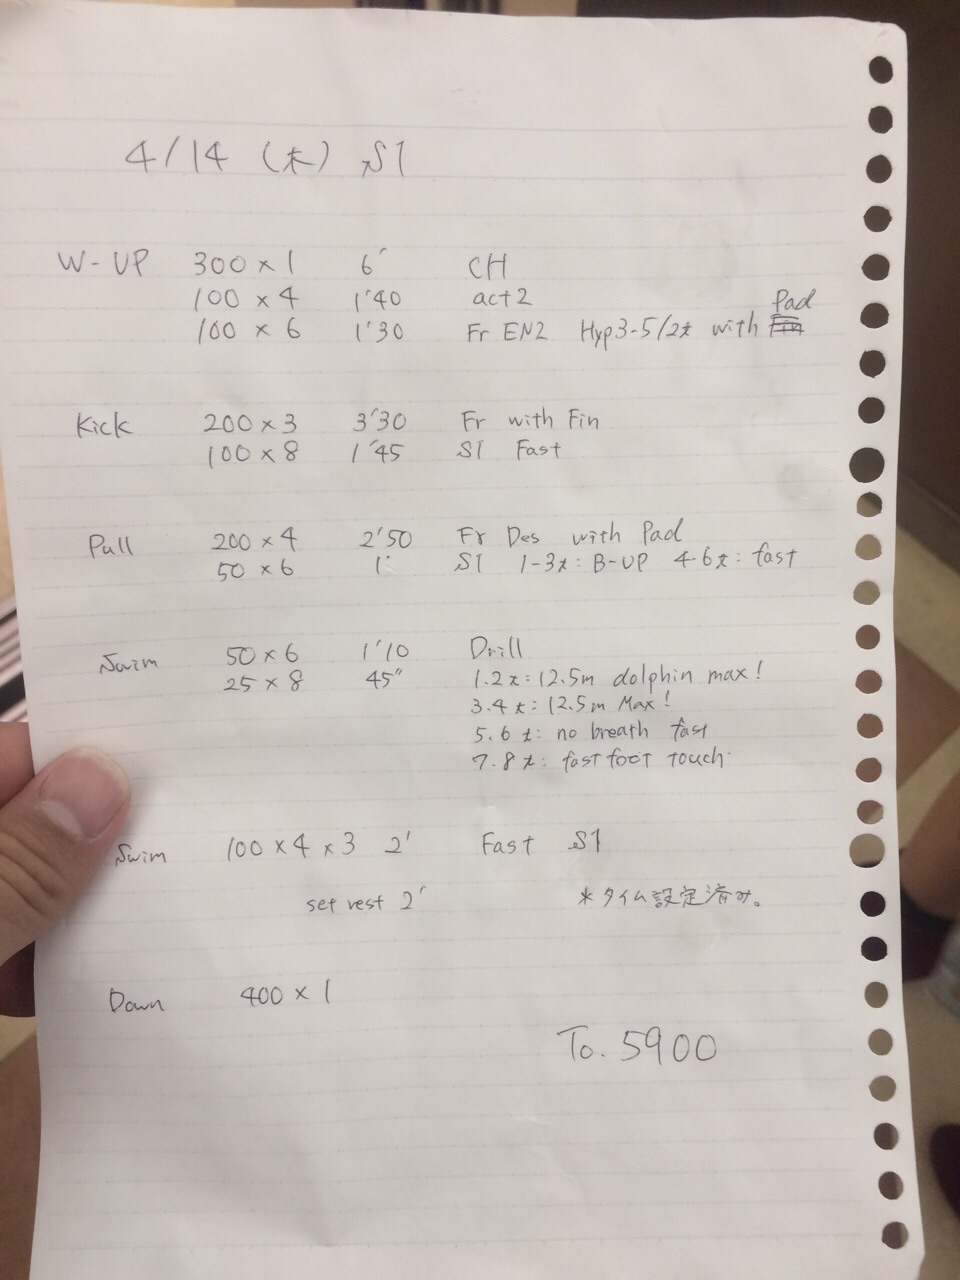 4/14 (木) S1
W-UP 300×1 6' CH
100×4 1'40 act2
Pad
100×6 1'30 Fr EN2 Hyp3-5/2t with Fin
Kick 200×3 3'30 Fr with Fin
100×8 1'45 S1 Fast
Pull 200×4 2'50 Fr Des with Pad
50×6 1' S1 1-3t: B-UP 4-6t: fast
Swim 50×6 1'10 Drill
25×8 45" 1.2t: 12.5m dolphin max!
3.4t: 12.5m Max!
5.6t: no breath fast
7.8t: fast foot touch
Swim 100×4×3 2' Fast S1
set rest 2' *タイム設定済み。
Down 400×1
To. 5900